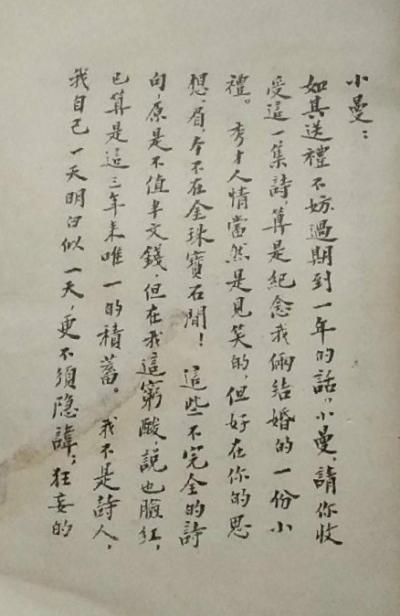 小曼：
如其送禮不妨過期到一年的話，小曼，請你收
受這一集詩，算是紀念我倆結婚的一份小
禮。秀才人情當然是見笑的，但好在你的思
想，眉，今不在金珠寶石間！這些不完全的詩
句，原是不值半文錢，但在我這窮酸，說也臉紅，
已算是這三年來唯一的積蓄。我不是詩人，
我自己一天明白似一天，更不須隱諱，狂妄的